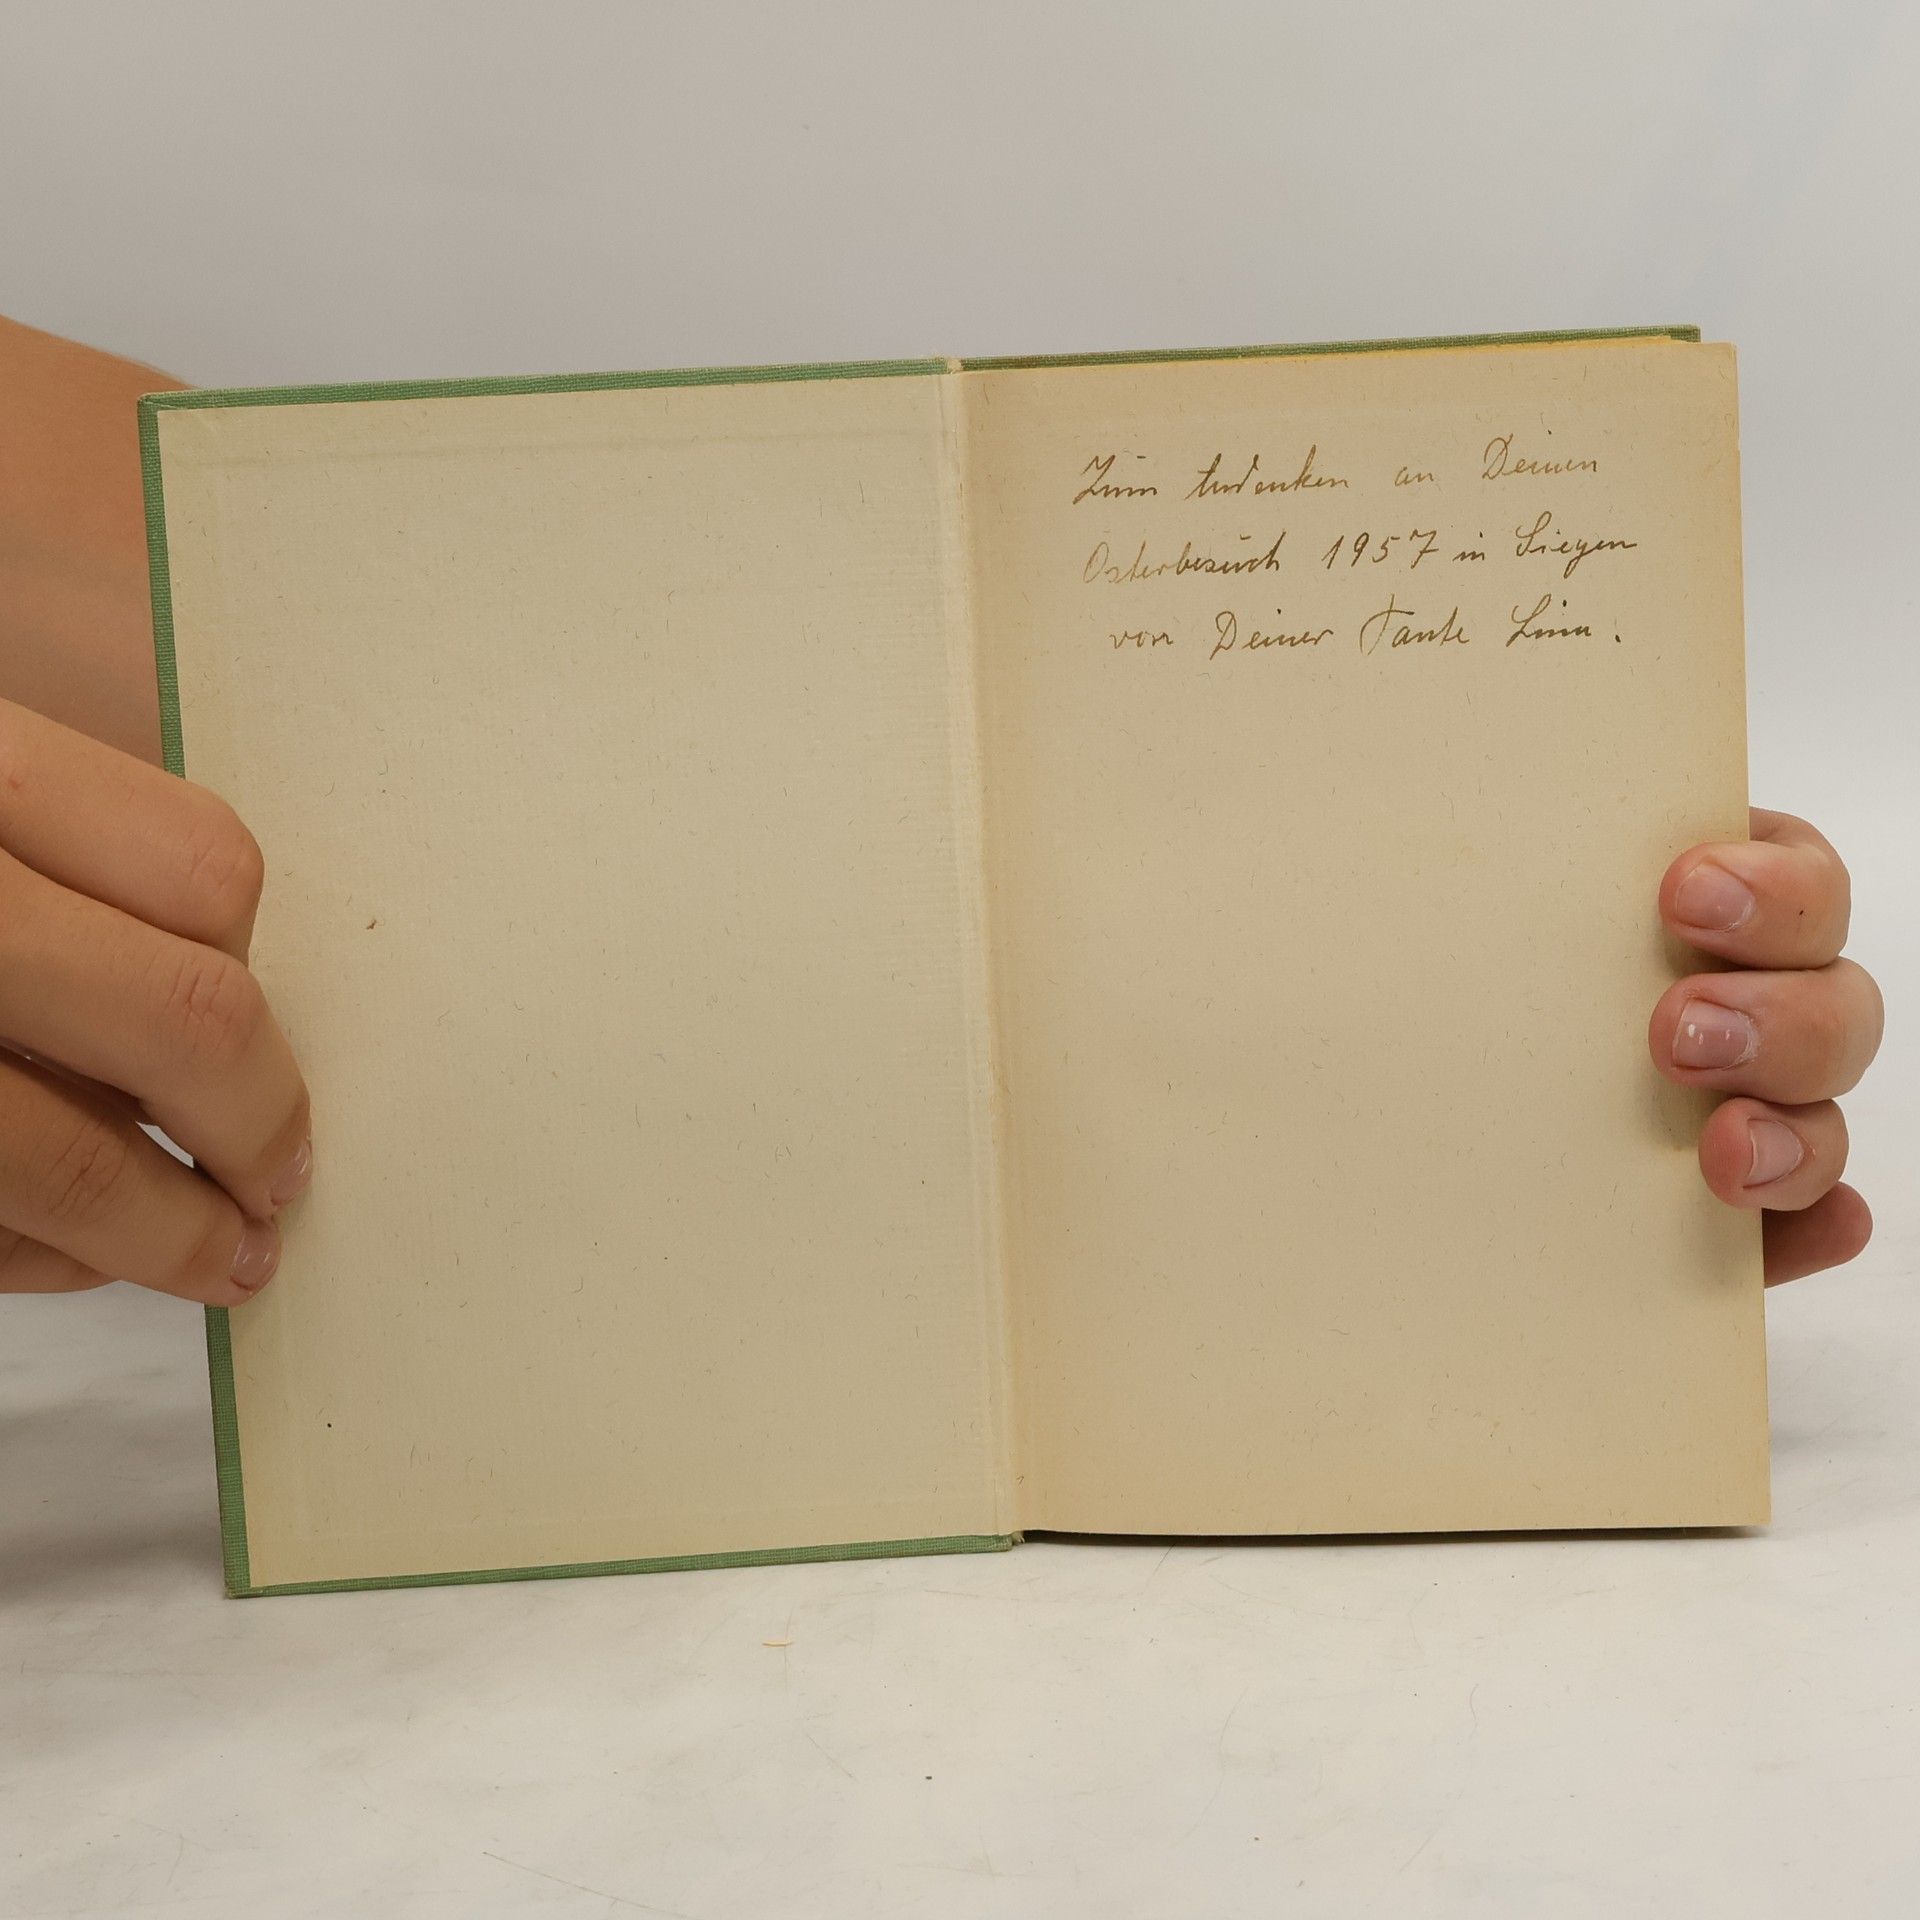 Zum Andenken an Deinen
Osterbesuch 1957 in Siegen
von Deiner Tante